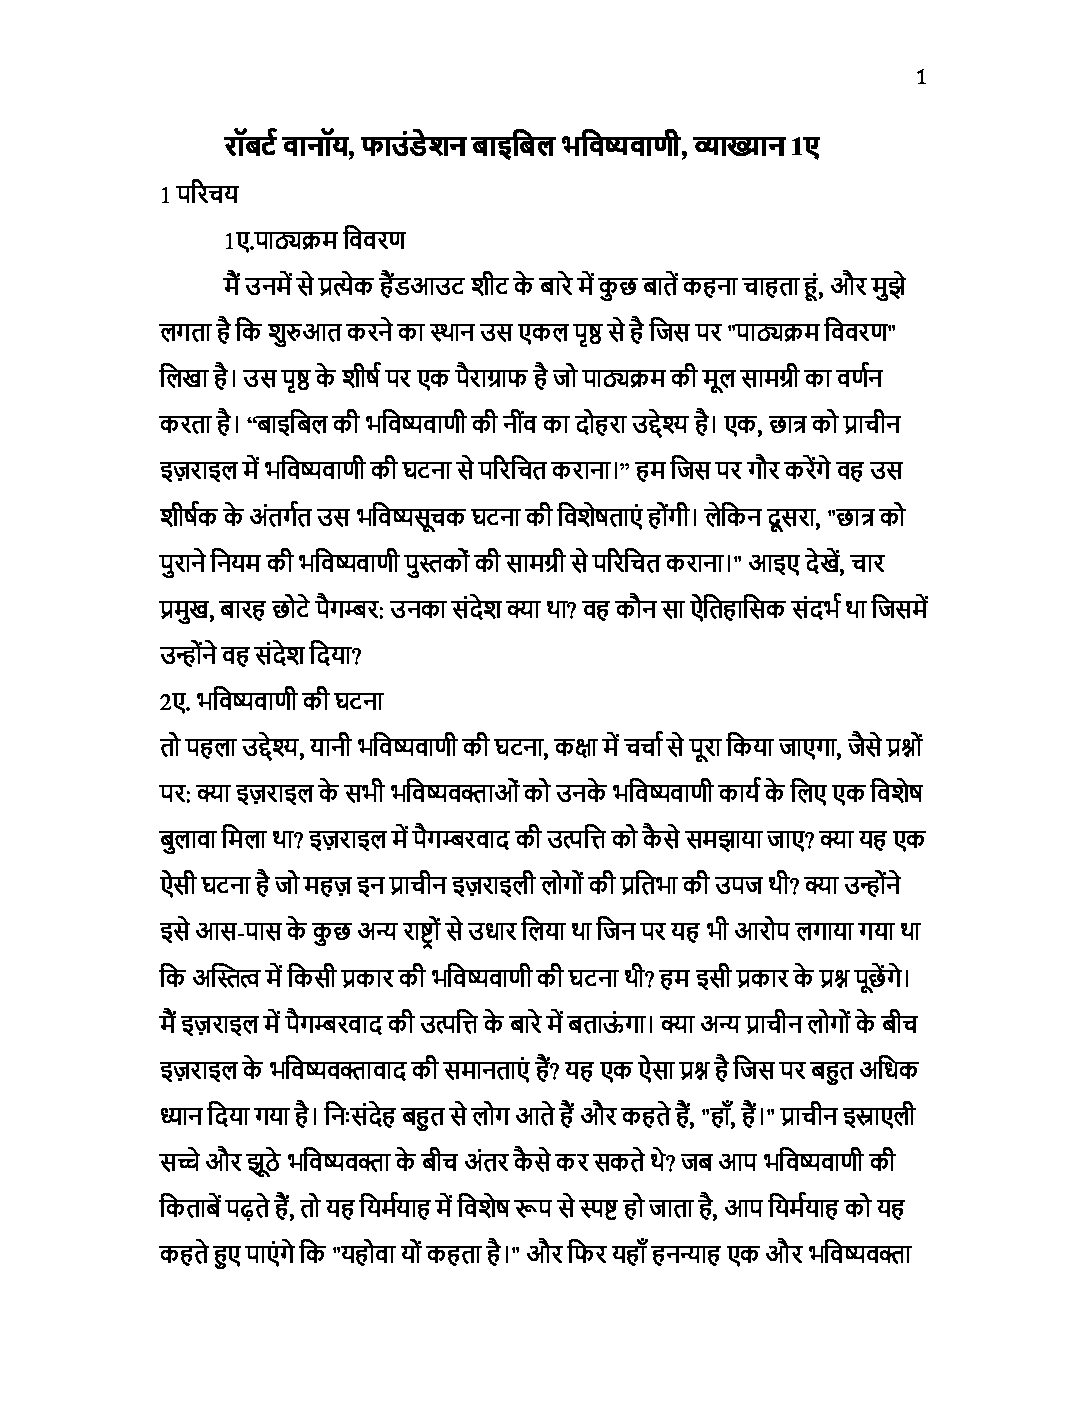 1
रॉबर्ट वानॉय, फाउंडेशन बाइबिल भविष्यवाणी, व्याख्यान 1ए
1 परिचय
1ए.पाठ्यक्रम विवरण
मैं उनमें से प्रत्येक हैंडआउट शीट के बारे में कुछ बातें कहना चाहता हूं, और मुझे
लगता है कि शुरुआत करने का स्थान उस एकल पृष्ठ से है जिस पर "पाठ्यक्रम विवरण"
लिखा है। उस पृष्ठ के शीर्ष पर एक पैराग्राफ है जो पाठ्यक्रम की मूल सामग्री का वर्णन
करता है। “बाइबिल की भविष्यवाणी की नींव का दोहरा उद्देश्य है। एक, छात्र को प्राचीन
इज़राइल में भविष्यवाणी की घटना से परिचित कराना।” हम जिस पर गौर करेंगे वह उस
शीर्षक के अंतर्गत उस भविष्यसूचक घटना की विशेषताएं होंगी। लेकिन दूसरा, "छात्र को
पुराने नियम की भविष्यवाणी पुस्तकों की सामग्री से परिचित कराना।" आइए देखें, चार
प्रमुख, बारह छोटे पैगम्बर: उनका संदेश क्या था? वह कौन सा ऐतिहासिक संदर्भ था जिसमें
उन्होंने वह संदेश दिया?
2ए. भविष्यवाणी की घटना
तो पहला उद्देश्य, यानी भविष्यवाणी की घटना, कक्षा में चर्चा से पूरा किया जाएगा, जैसे प्रश्नों
पर: क्या इज़राइल के सभी भविष्यवक्ताओं को उनके भविष्यवाणी कार्य के लिए एक विशेष
बुलावा मिला था? इज़राइल में पैगम्बरवाद की उत्पत्ति को कैसे समझाया जाए? क्या यह एक
ऐसी घटना है जो महज़ इन प्राचीन इज़राइली लोगों की प्रतिभा की उपज थी? क्या उन्होंने
इसे आस-पास के कुछ अन्य राष्ट्रों से उधार लिया था जिन पर यह भी आरोप लगाया गया था
कि अस्तित्व में किसी प्रकार की भविष्यवाणी की घटना थी? हम इसी प्रकार के प्रश्न पूछेंगे।
मैं इज़राइल में पैगम्बरवाद की उत्पत्ति के बारे में बताऊंगा। क्या अन्य प्राचीन लोगों के बीच
इज़राइल के भविष्यवक्तावाद की समानताएं हैं? यह एक ऐसा प्रश्न है जिस पर बहुत अधिक
ध्यान दिया गया है। निःसंदेह बहुत से लोग आते हैं और कहते हैं, "हाँ, हैं।" प्राचीन इस्राएली
सच्चे और झूठे भविष्यवक्ता के बीच अंतर कैसे कर सकते थे? जब आप भविष्यवाणी की
किताबें पढ़ते हैं, तो यह यिर्मयाह में विशेष रूप से स्पष्ट हो जाता है, आप यिर्मयाह को यह
कहते हुए पाएंगे कि "यहोवा यों कहता है।" और फिर यहाँ हनन्याह एक और भविष्यवक्ता